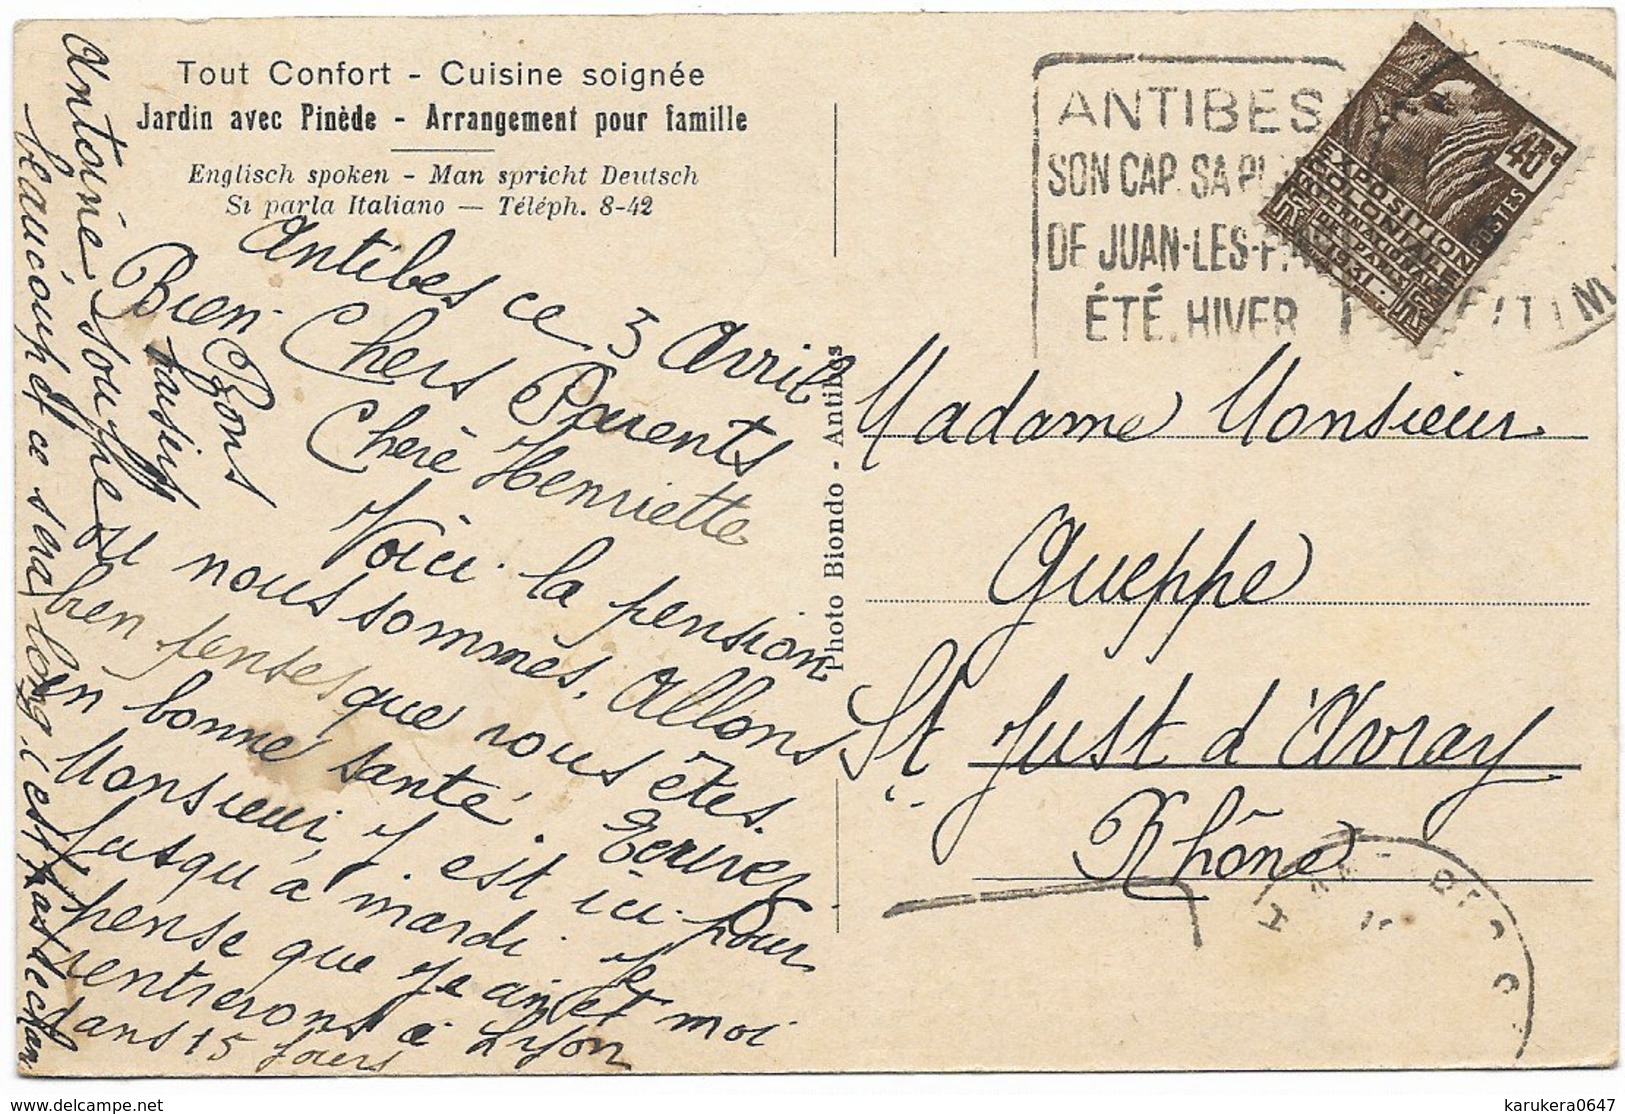 Tout Confort - Cuisine soignée
Jardin avec Pinède - Arrangement pour famille
Englisch spoken - Man spricht Deutsch
Si parla Italiano — Téléph. 8-42
Antibes ce 3 Avril
Bien Chers Parents
Chère Henriette
Voici la pension
ou nous sommes. Allons
bien penses que vous êtes
en bonne santé. Ecrivez
Monsieur, J est ici pour
jusqu'à mardi. Je
pense que Jean et moi
rentrerons à Lyon
dans 15 Jours
Bons
Baisers
Antoine souffre
beaucoup et ce sera long, c'est pas de chan
Photo Biondo - Antibes
ANTIBES
SON CAP. SA
DE JUAN-LES-P
ÉTÉ. HIVER
40c
POSTES
EXPOSITION
COLONIALE
INTERNATIONALE
DE PARIS
1931
Madame Monsieur
Gueppe
St Just d'Avray
Rhône
delcampe.net
karukera0647